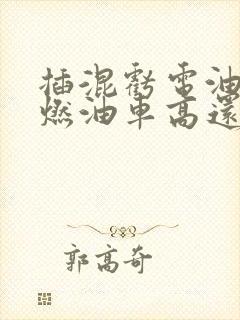 插混虧電油
燃油車高還
郭高奇